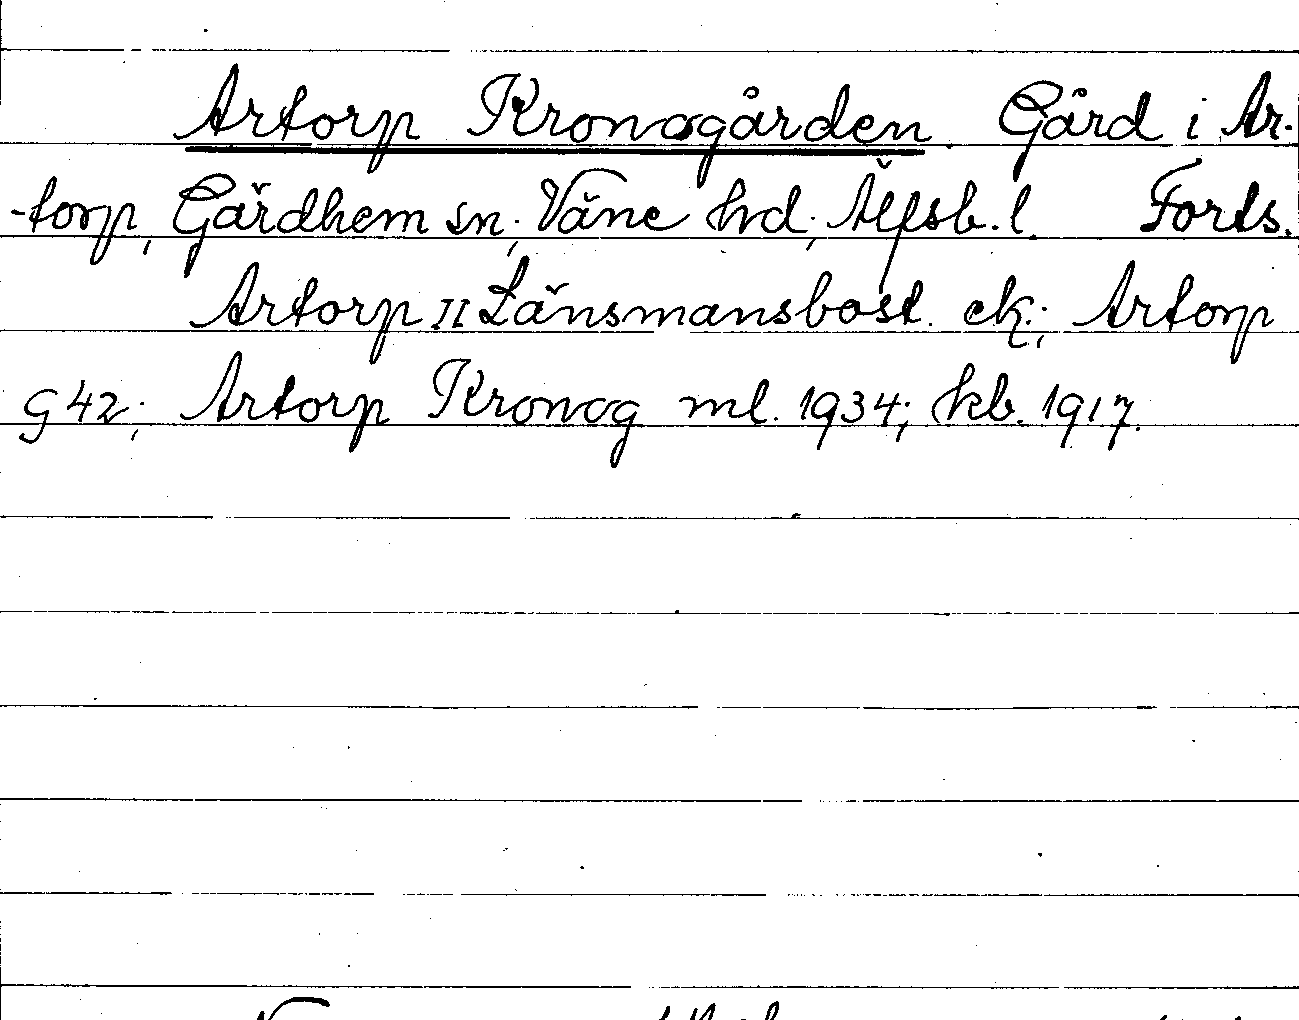 Artorp Kronogården. Gård i Ar-
-torp, Gärdhem sn; Väne hd; Älfsb. l. Forts.
Artorp II Länsmansbost. ek.; Artorp
G 42; Artorp Kronog ml. 1934; kb. 1917.